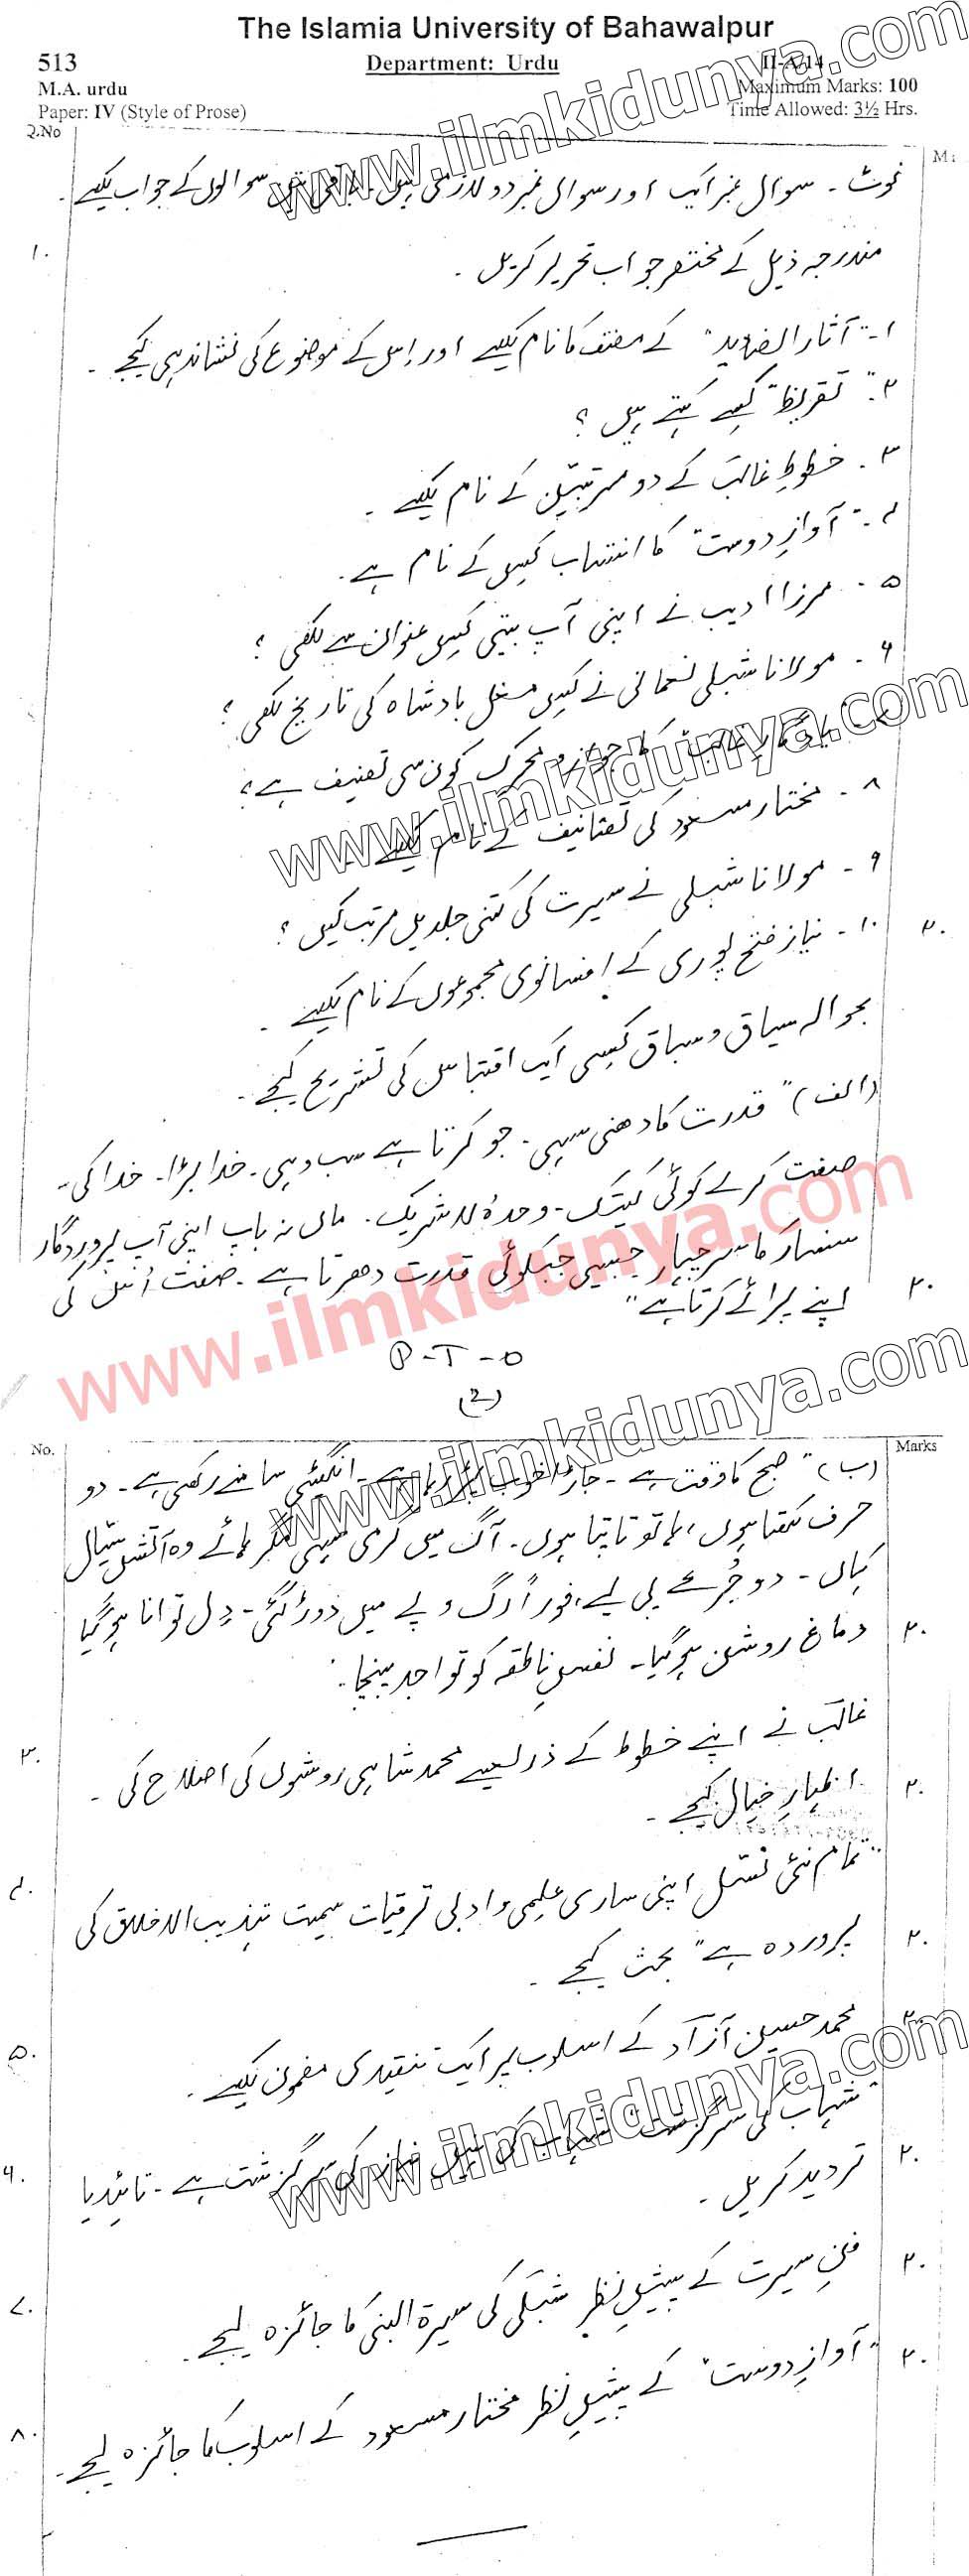 The Islamia University of Bahawalpur
513
Department: Urdu
II-A/14
M.A. urdu
Maximum Marks: 100
Paper: IV (Style of Prose)
Time Allowed: 3½ Hrs.
Q.No
M:
نوٹ۔ سوال نمبر ایک اور سوال نمبر دو لازمی ہیں۔ سوالوں کے جواب لکھیے۔
۱. مندرجہ ذیل کے مختصر جواب تحریر کریں۔
۱۔ "آثار الصنادید" کے مصنف کا نام لکھیے اور اس کے موضوع کی نشاندہی کیجیے۔
۲۔ "تقریظ" کسے کہتے ہیں؟
۳۔ خطوطِ غالب کے دو مرتبین کے نام لکھیے۔
۴۔ "آوازِ دوست" کا انتساب کس کے نام ہے۔
۵۔ مرزا ادیب نے اپنی آپ بیتی کس عنوان سے لکھی؟
۶۔ مولانا شبلی نعمانی نے کس مغل بادشاہ کی تاریخ لکھی؟
کا جواز و محرک کون سی تصنیف ہے؟
۸۔ مختار مسعود کی تصانیف کے نام لکھیے۔
۹۔ مولانا شبلی نے سیرت کی کتنی جلدیں مرتب کیں؟
۱۰۔ نیاز فتح پوری کے افسانوی مجموعوں کے نام لکھیے۔ ۲۰
بحوالہ سیاق و سباق کسی ایک اقتباس کی تشریح کیجیے۔
(الف) "قدرت کا دھنی سہی۔ جو کرتا ہے سب وہی۔ خدا بڑا۔ خدا کی۔
صفت کرے کوئی کیتک۔ وحدہٗ لاشریک۔ ماں نہ باپ اپنی آپ پروردگار
سنسار کا سرجہار جیسی جیکوئی قدرت دھرتا ہے۔ صفت اس کی
اپنے پرائے کرتا ہے" ۲۰
P-T-O
(2)
No.
Marks
(ب) "صبح کا وقت ہے۔ جاڑا خوب پڑ رہا ہے۔ انگیٹھی سامنے رکھی ہے۔ دو
حرف لکھتا ہوں، ہاتھ تاپتا ہوں۔ آگ میں گرمی سہی مگر ہائے وہ آتشِ سیال
کہاں۔ دو جُرعے پی لیے، فوراً رگ و پے میں دوڑ گئی۔ دل توانا ہو گیا
دماغ روشن ہو گیا۔ نفسِ ناطقہ کو تواجد پہنچا۔" ۲۰
۳. غالب نے اپنے خطوط کے ذریعے محمد شاہی روشوں کی اصلاح کی۔
اظہارِ خیال کیجیے۔ ۲۰
۴. "تمام نئی نسل اپنی ساری علمی و ادبی ترقیات سمیت تہذیب الاخلاق کی
پروردہ ہے" بحث کیجیے۔ ۲۰
۵. محمد حسین آزاد کے اسلوب پر ایک تنقیدی مضمون لکھیے۔ ۲۰
۶. "شہاب کی سرگزشت" نیاز کی سرگزشت ہے۔ تائید یا
تردید کریں۔ ۲۰
۷. فنِ سیرت کے پیشِ نظر شبلی کی سیرۃ النبی کا جائزہ لیجیے۔ ۲۰
۸. "آوازِ دوست" کے پیشِ نظر مختار مسعود کے اسلوب کا جائزہ لیجیے۔ ۲۰
www.ilmkidunya.com
www.ilmkidunya.com
www.ilmkidunya.com
www.ilmkidunya.com
www.ilmkidunya.com